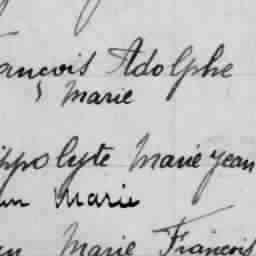 ançois Adolphe
Marie
ippolyte Marie Jean
Marie
Marie François